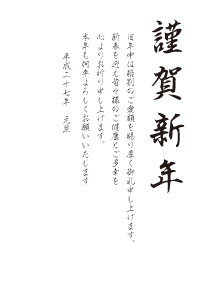 謹賀新年
旧年中は格別のご愛顧を賜り厚く御礼申し上げます。
新春を迎え皆々様のご健康とご多幸を
心よりお祈り申し上げます。
本年も何卒よろしくお願いいたします
平成二十七年 元旦